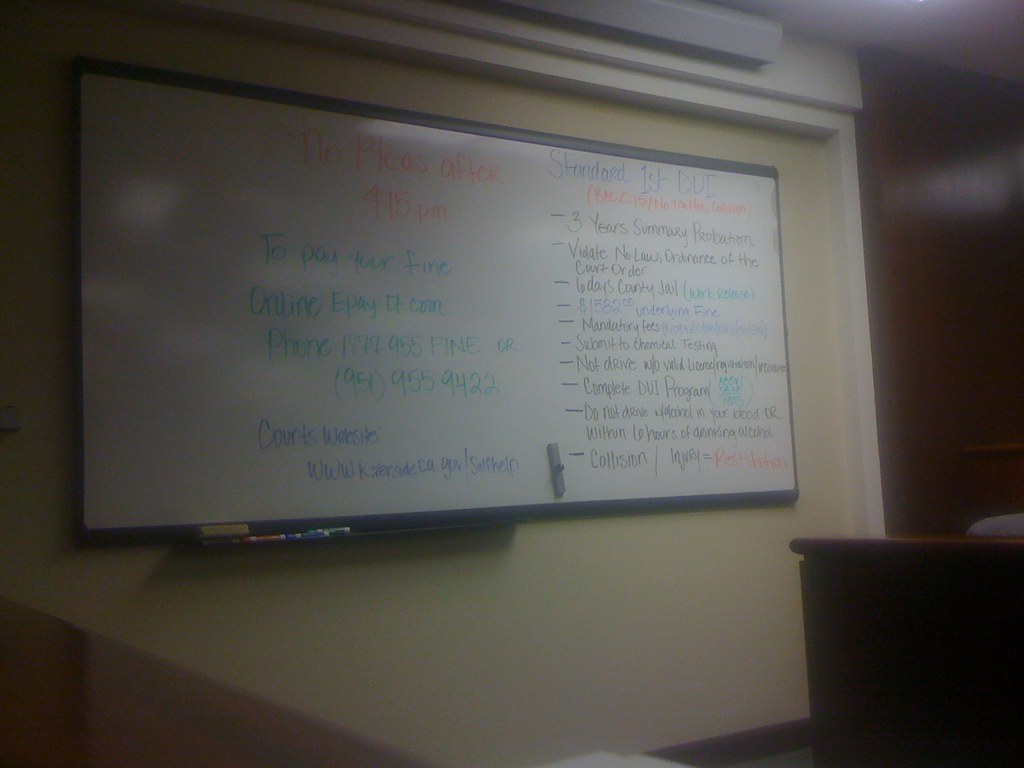 No Pleas after
4:15 pm
To pay your fine
Online Epay It.com
Phone: 1877.955 FINE OR
(951) 955-9422
Courts Website
www.Riverside.ca.gov/Selfhelp
Standard 1st DUI
(BAC .15/No traffic Collision)
- 3 Years Summary Probation
- Violate No Law, Ordinance of the
Court Order
- 6 days County Jail (Work Release)
- $1582.00 underlying Fine
- Mandatory fees
- Submit to Chemical Testing
- Not drive w/o valid License/registration/insurance
- Complete DUI Program
- Do not drive w/alcohol in your blood OR
Within 6 hours of drinking alcohol
- Collision / Injury = Restitution